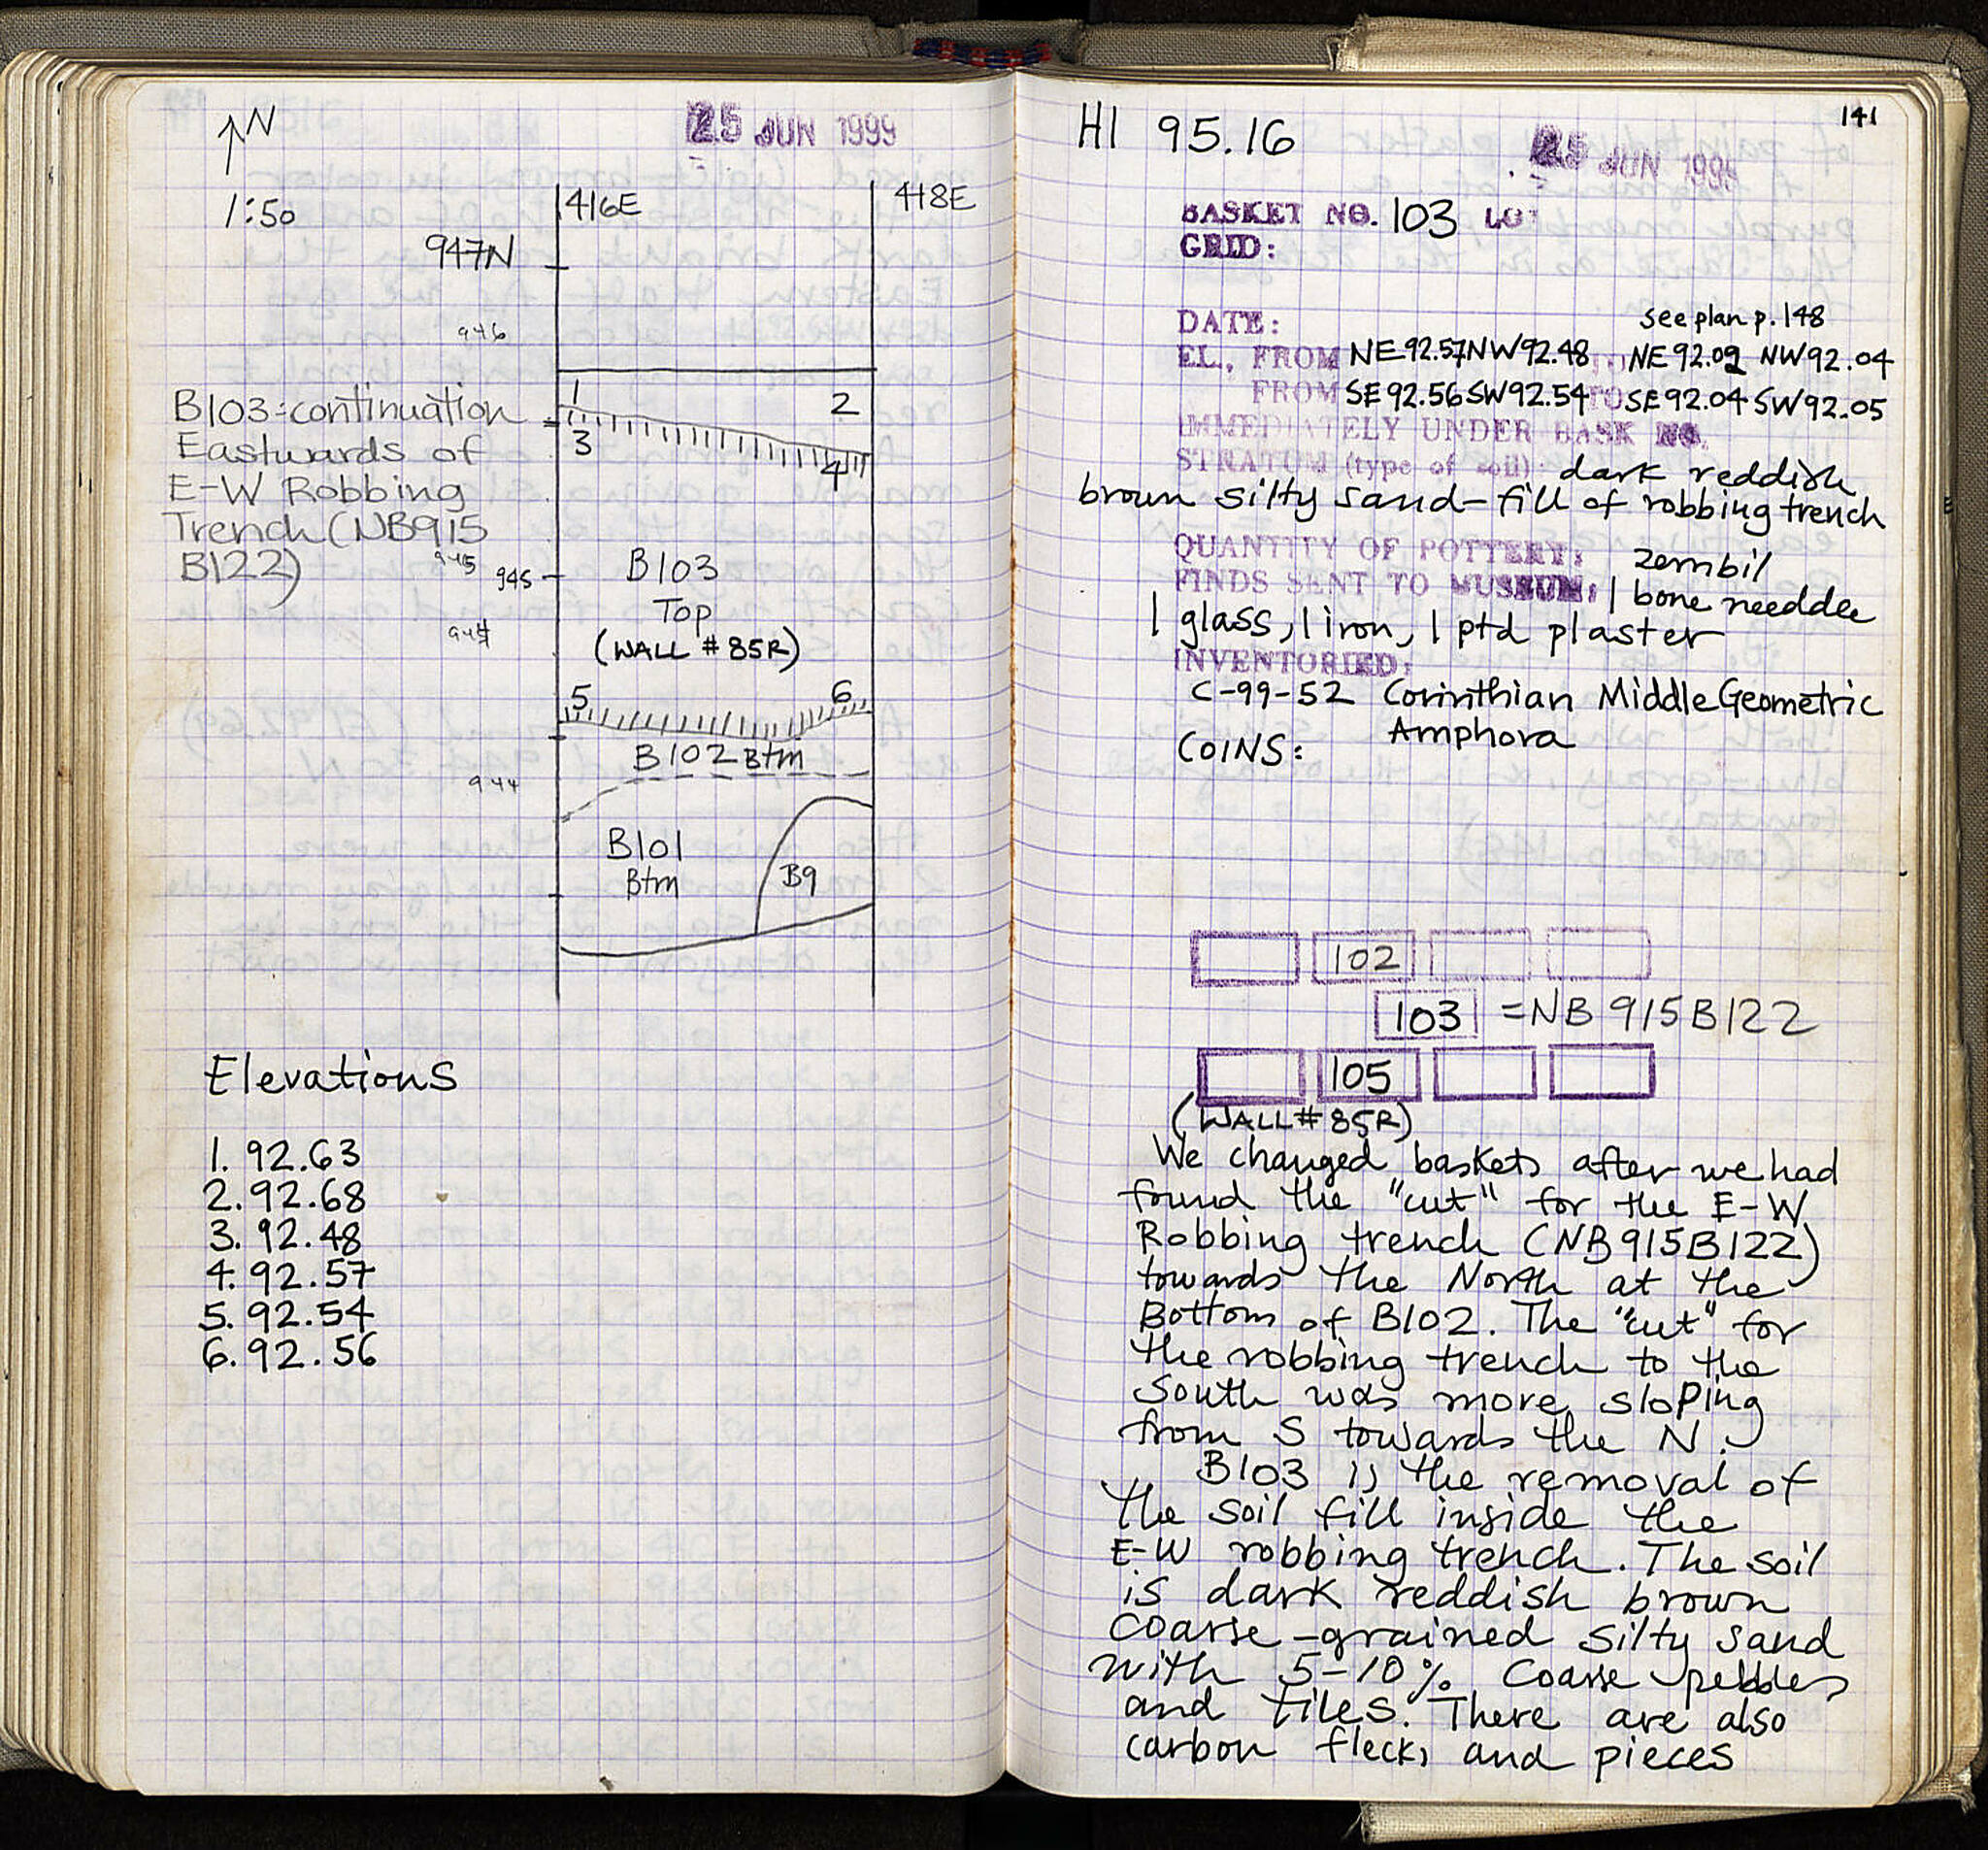 N
25 JUN 1999
1:50
416E
418E
947N
946
B103=continuation
Eastwards of
E-W Robbing
Trench (NB915
B122)
1
2
3
4
945
945
B103
Top
(WALL # 85R)
5
6
B102 Btm
944
B101
Btm
B9
Elevations
1. 92.63
2. 92.68
3. 92.48
4. 92.57
5. 92.54
6. 92.56
141
HI 95.16
25 JUN 1999
BASKET NO. 103 LO
GRID:
see plan p. 148
DATE:
EL., FROM NE 92.57 NW 92.48 TO NE 92.02 NW 92.04
FROM SE 92.56 SW 92.54 TO SE 92.04 SW 92.05
IMMEDIATELY UNDER BASK NO.
STRATUM (type of soil): dark reddish
brown silty sand-fill of robbing trench
QUANTITY OF POTTERY: zembil
FINDS SENT TO MUSEUM: 1 bone needdle
1 glass, 1 iron, 1 ptd plaster
INVENTORIED:
C-99-52 Corinthian Middle Geometric
Amphora
COINS:
102
103 =NB 915 B122
105
(WALL# 85R)
We changed baskets after we had
found the "cut" for the E-W
Robbing trench (NB915B122)
towards the North at the
Bottom of B102. The "cut" for
the robbing trench to the
South was more sloping
from S towards the N.
B103 is the removal of
the soil fill inside the
E-W robbing trench. The soil
is dark reddish brown
coarse-grained silty sand
with 5-10% coarse pebbles
and tiles. There are also
carbon flecks and pieces